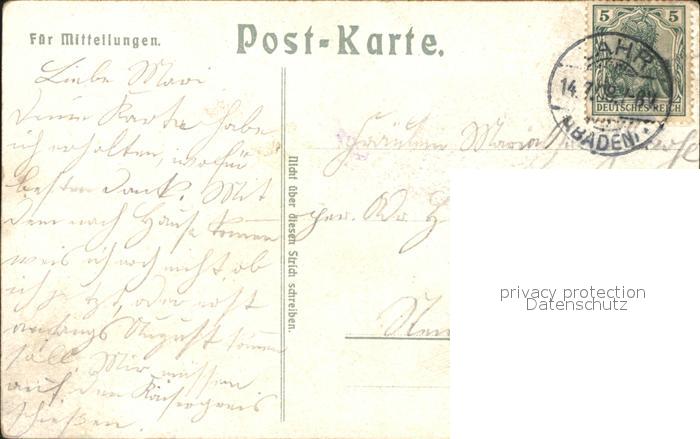 Für Mitteilungen.
Post-Karte.
5 5
LAHR
14.7.09.
(BADEN)
DEUTSCHES REICH
Liebe Mari
Deine Karte habe
ich erhalten, wofür
besten Dank. Mit
dem nach Hause kommen
weis ich noch nicht, ob
ich jetzt, oder erst
anfangs August kommen
soll. Mir müssen
auf den Kaiserpreis
schießen.
Nicht über diesen Strich schreiben.
Fräulein Maria
per. Adr. H
privacy protection
Datenschutz